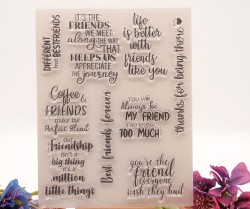 DIFFERENT
BESTFRIENDS
IT'S THE
FRIENDS
WE MEET
along THE WAY
THAT
HELPS US
APPRECIATE
the journey
life
is better
with
friends
like you
thanks for being there
Coffee
&
FRIENDS
make the
Perfect Blend
our
Friendship
isn't a
big thing
it's a
million
little things
Best friends forever
YOU WILL
Always be
MY FRIEND
YOU KNOW
TOO MUCH
you're the
friend
Everyone
wish they had